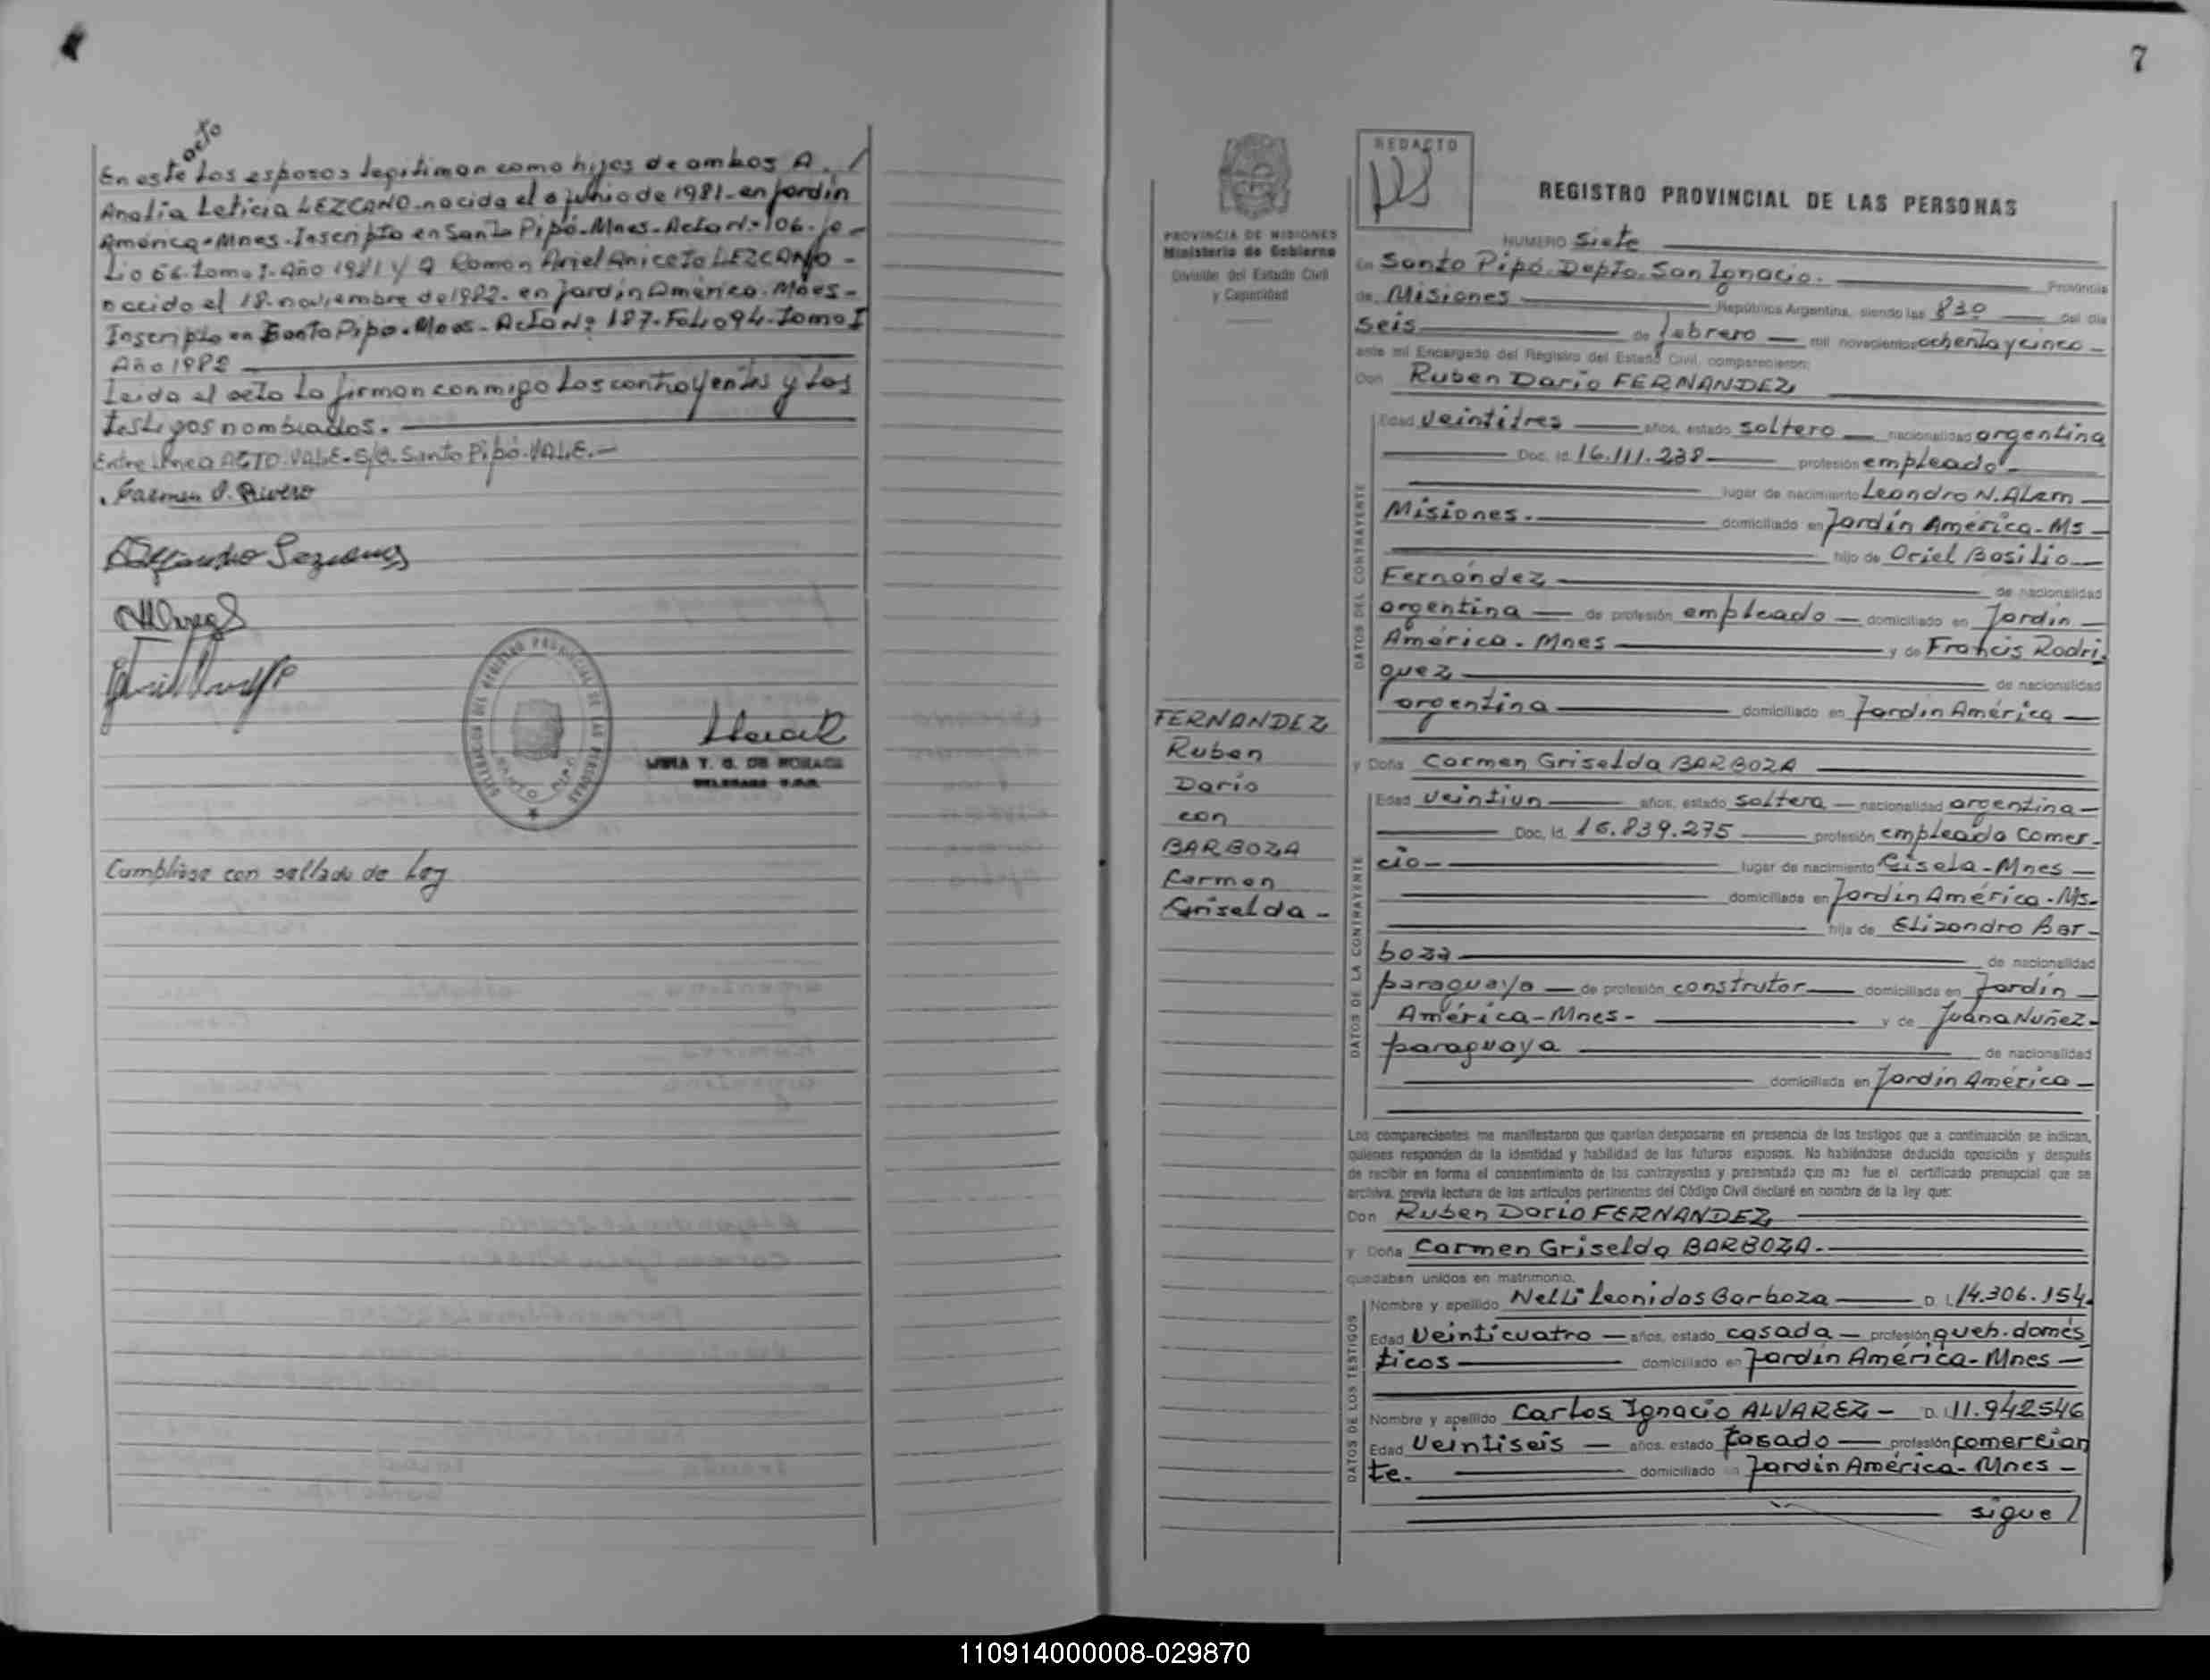 acto
En este los esposos legitiman como hijos de ambos A. /
Analia Leticia LEZCANO. nacida el 8 junio de 1981. en Jardín
América. Mnes. Inscripta en Santo Pipó. Mnes. Acta N.º 106. Fo-
lio 56. Tomo I. Año 1981 y a Ramón Ariel Aniceto LEZCANO -
nacido el 18. noviembre de 1982. en Jardín América. Mnes -
Inscripto en Santo Pipo. Mnes. Acta Nº 187. Folio 94. Tomo I
Año 1982
Leido el acto lo firman conmigo los contrayentes y los
testigos nombrados.
Entre línea ACTO. VALE. S/B. Santo Pipó. VALE. -
Carmen O. Rivero
DELEGACION DEL REGISTRO PROVINCIAL DE LAS PERSONAS
DELEGADA
Cumplióse con sellado de Ley
7
PROVINCIA DE MISIONES
Ministerio de Gobierno
División del Estado Civil
y Capacidad
REDACTO
REGISTRO PROVINCIAL DE LAS PERSONAS
NUMERO Siete
En Santo Pipó. Depto. San Ignacio. Provincia
de Misiones República Argentina, siendo las 830 del día
seis de febrero mil novecientos ochenta y cinco -
ante mí Encargado del Registro del Estado Civil, comparecieron:
Don Ruben Dario FERNANDEZ
FERNANDEZ
Ruben
Dario
con
BARBOZA
Carmen
Griselda -
DATOS DEL CONTRAYENTE
Edad Veintitres años, estado soltero nacionalidad argentina
Doc. Id. 16.111.238 profesión empleado
lugar de nacimiento Leandro N. Alem
Misiones. domiciliado en Jardín América. Ms -
hijo de Oriel Basilio
Fernández de nacionalidad
argentina de profesión empleado domiciliado en Jardín
América. Mnes y de Francis Rodri
guez de nacionalidad
argentina domiciliado en Jardín América
y Doña Carmen Griselda BARBOZA
DATOS DE LA CONTRAYENTE
Edad Veintiun años, estado soltera nacionalidad argentina -
Doc. Id. 16.839.275 profesión empleada comer-
cio- lugar de nacimiento Gisela - Mnes
domiciliada en Jardín América. Ms.
hija de Elizandro Bar-
boza de nacionalidad
paraguaya de profesión construtor domiciliada en Jardín
América - Mnes - y de Juana Nuñez-
paraguaya de nacionalidad
domiciliada en Jardín América
Los comparecientes me manifestaron que querían desposarse en presencia de los testigos que a continuación se indican,
quienes responden de la identidad y habilidad de los futuros esposos. No habiéndose deducido oposición y después
de recibir en forma el consentimiento de los contrayentes y presentado que me fue el certificado prenupcial que se
archiva, previa lectura de los artículos pertinentes del Código Civil declaré en nombre de la ley que:
Don Ruben Dario FERNANDEZ
y Doña Carmen Griselda BARBOZA.
quedaban unidos en matrimonio.
DATOS DE LOS TESTIGOS
Nombre y apellido Nelli Leonidas Barboza D. I. 14.306.154.
Edad Veinticuatro años, estado casada profesión queh. domés
ticos domiciliado en Jardín América - Mnes
Nombre y apellido Carlos Ignacio ALVAREZ - D. I. 11.942546
Edad Veintiseis años, estado casado profesión comercian
te. domiciliado en Jardín América - Mnes -
sigue /
110914000008-029870